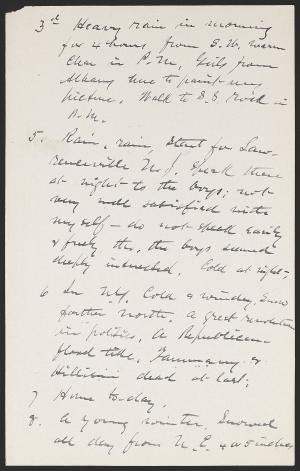 3rd Heavy rain in morning
for 4 hours, from S.W. warm
Clear in P.M., Girls from
Albany here to paint my
picture. Walk to S.S. rock in
P.M.
5. Rain, rain, start for Law-
renceville N.J. Speak there
at night to the boys; not
very well satisfied with
myself – do not speak easily
& freely, tho. the boys seemed
deeply interested. Cold at night,
6 In N.Y. Cold & windy, Snow
farther north. A great revolution
in politics, A Republican
flood tide, Tammany &
Hillism dead at last;
7 Home to-day.
8. A young winter, Snowed
all day from N.E. 4 or 5 inches